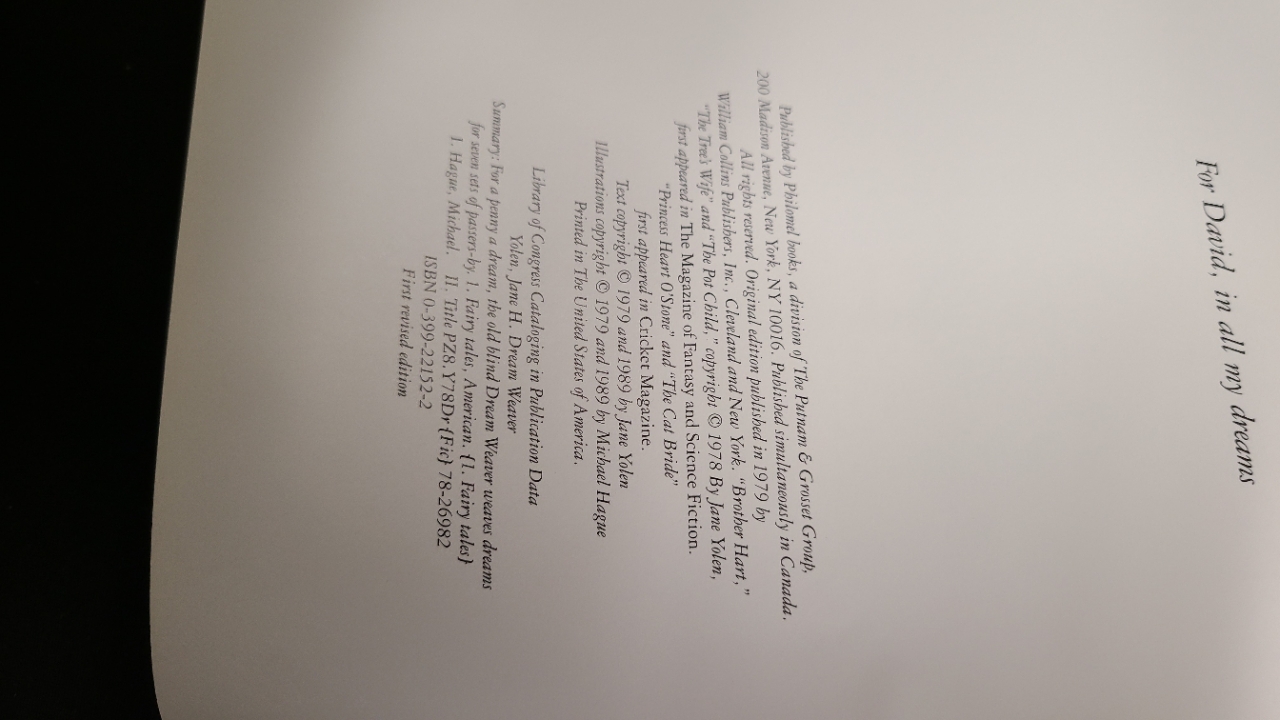 For David, in all my dreams
Published by Philomel books, a division of The Putnam & Grosset Group,
200 Madison Avenue, New York, NY 10016. Published simultaneously in Canada.
All rights reserved. Original edition published in 1979 by
William Collins Publishers, Inc., Cleveland and New York. "Brother Hart,"
"The Tree's Wife" and "The Pot Child," copyright © 1978 By Jane Yolen,
first appeared in The Magazine of Fantasy and Science Fiction.
"Princess Heart O'Stone" and "The Cat Bride"
first appeared in Cricket Magazine.
Text copyright © 1979 and 1989 by Jane Yolen
Illustrations copyright © 1979 and 1989 by Michael Hague
Printed in The United States of America.
Library of Congress Cataloging in Publication Data
Yolen, Jane H. Dream Weaver
Summary: For a penny a dream, the old blind Dream Weaver weaves dreams
for seven sets of passers-by. 1. Fairy tales, American. {1. Fairy tales}
I. Hague, Michael. II. Title PZ8.Y78Dr {Fic} 78-26982
ISBN 0-399-22152-2
First revised edition